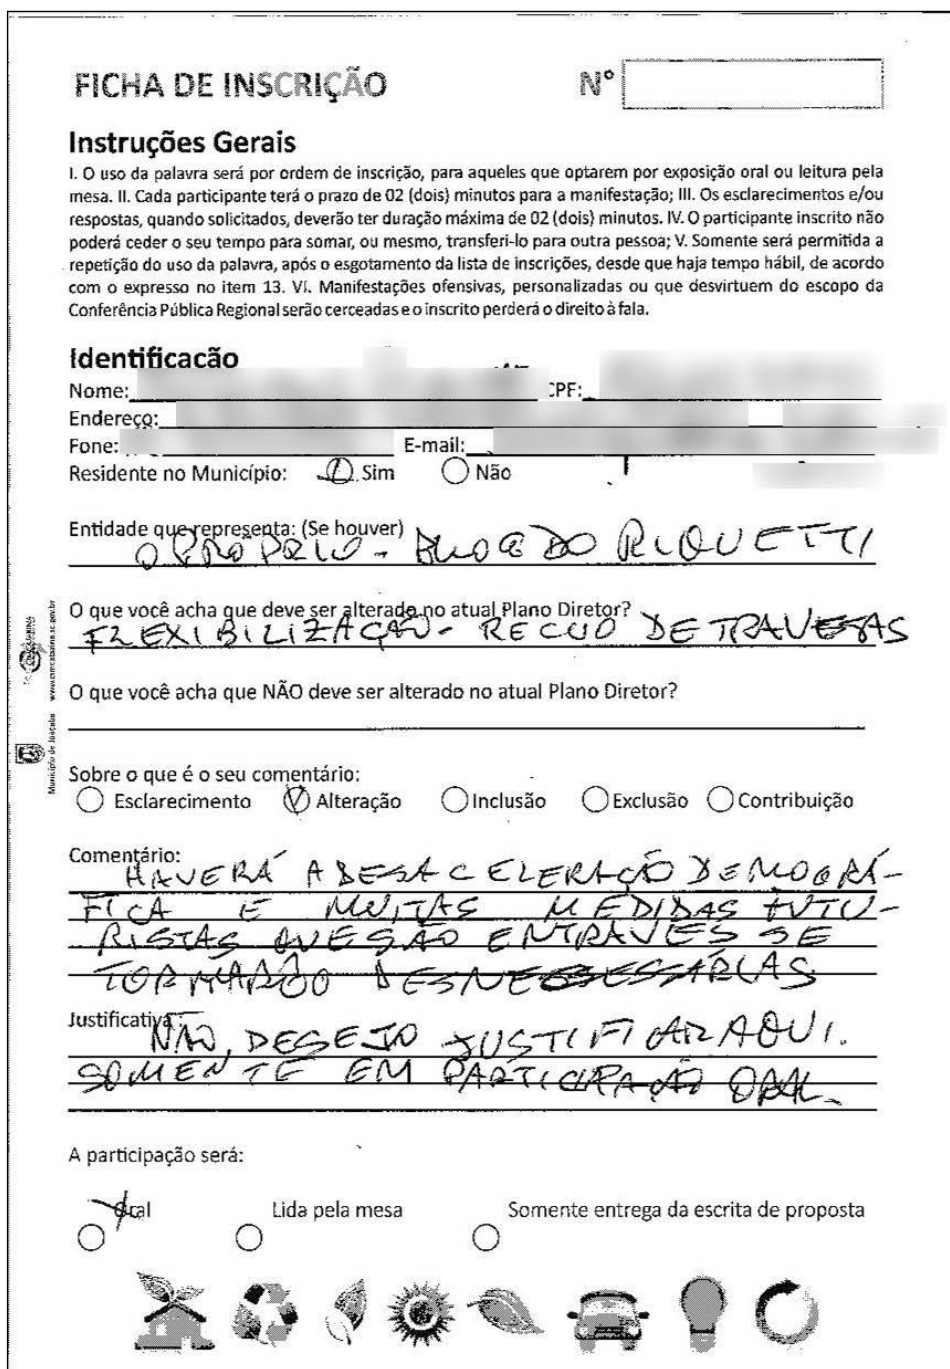 FICHA DE INSCRIÇÃO
Nº
Instruções Gerais
I. O uso da palavra será por ordem de inscrição, para aqueles que optarem por exposição oral ou leitura pela
mesa. II. Cada participante terá o prazo de 02 (dois) minutos para a manifestação; III. Os esclarecimentos e/ou
respostas, quando solicitados, deverão ter duração máxima de 02 (dois) minutos. IV. O participante inscrito não
poderá ceder o seu tempo para somar, ou mesmo, transferi-lo para outra pessoa; V. Somente será permitida a
repetição do uso da palavra, após o esgotamento da lista de inscrições, desde que haja tempo hábil, de acordo
com o expresso no item 13. VI. Manifestações ofensivas, personalizadas ou que desvirtuem do escopo da
Conferência Pública Regional serão cerceadas e o inscrito perderá o direito à fala.
Identificação
Nome: CPF:
Endereço:
Fone: E-mail:
Residente no Município: Sim Não
Entidade que representa: (Se houver)
O PRÓPRIO - BLOG DO RIQUETTI
O que você acha que deve ser alterado no atual Plano Diretor?
FLEXIBILIZAÇÃO - RECUO DE TRAVESSAS
O que você acha que NÃO deve ser alterado no atual Plano Diretor?
Sobre o que é o seu comentário:
Esclarecimento Alteração Inclusão Exclusão Contribuição
Comentário:
HAVERÁ A DESACELERAÇÃO DEMOGRÁ-
FICA E MUITAS MEDIDAS FUTU-
RISTAS QUE SÃO ENTRAVES SE
TORNARÃO DESNECESSÁRIAS
Justificativa:
NÃO DESEJO JUSTIFICAR AQUI.
SOMENTE EM PARTICIPAÇÃO ORAL.
A participação será:
Oral Lida pela mesa Somente entrega da escrita de proposta
Município de Joaçaba